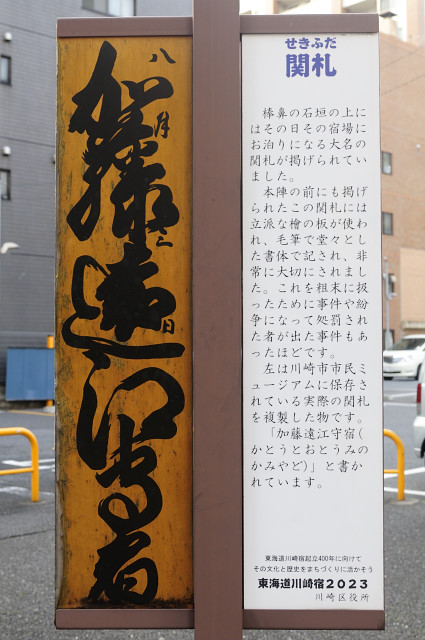 八月
廿二日
加藤遠江守宿
せきふだ
関札
棒鼻の石垣の上に
はその日その宿場に
お泊りになる大名の
関札が掲げられてい
ました。
本陣の前にも掲げ
られたこの関札には
立派な檜の板が使わ
れ、毛筆で堂々とし
た書体で記され、非
常に大切にされまし
た。これを粗末に扱
ったために事件や紛
争になって処罰され
た者が出た事件もあ
ったほどです。
左は川崎市市民ミ
ュージアムに保存さ
れている実際の関札
を複製した物です。
「加藤遠江守宿(
かとうとおとうみの
かみやど)」と書か
れています。
東海道川崎宿起立400年に向けて
その文化と歴史をまちづくりに活かそう
東海道川崎宿2023
川崎区役所